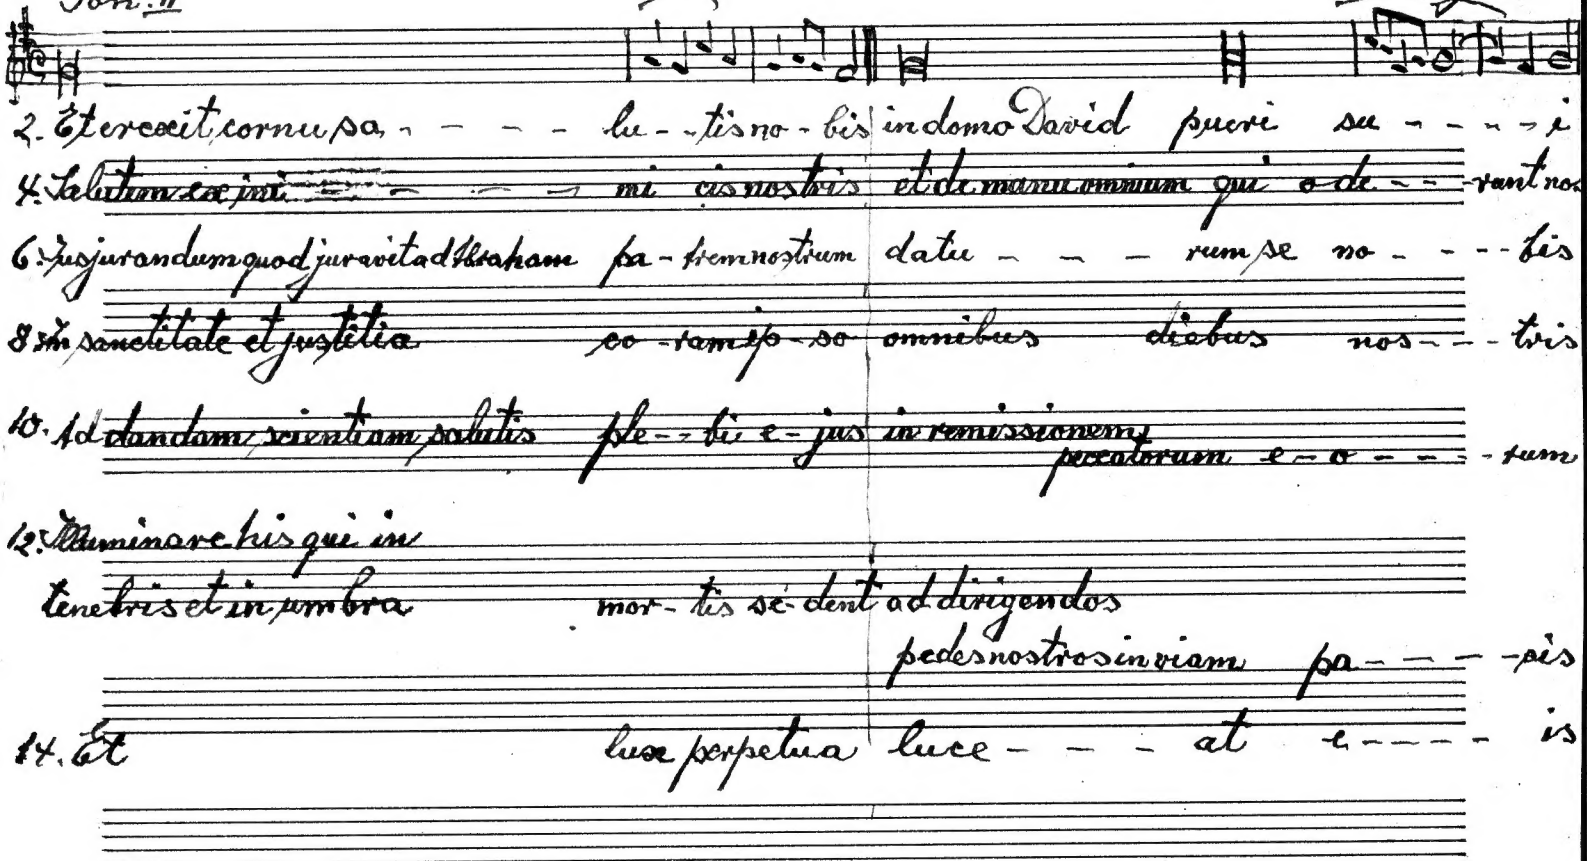 Ton. II
2. Et erexit cornu sa - - - - - lu - - tis no - bis in domo David pueri su - - - - i
4. Salutem ex ini - - - - mi cis nostris et de manu omnium qui o - de - - - - rant nos
6. Jusjurandum quod juravit ad Abraham pa - trem nostrum datu - - - - rum se no - - - - bis
8. In sanctitate et justitia co - ram ip - so omnibus diebus nos - - - - tris
10. Ad dandam scientiam salutis ple - - bi e - jus in remissionem
peccatorum e - o - - - - - rum
12. Illuminare his qui in
tenebris et in umbra mor - tis se - dent ad dirigendos
pedes nostros in viam pa - - - - - cis
14. Et lux perpetua luce - - - - at e - - - - - is